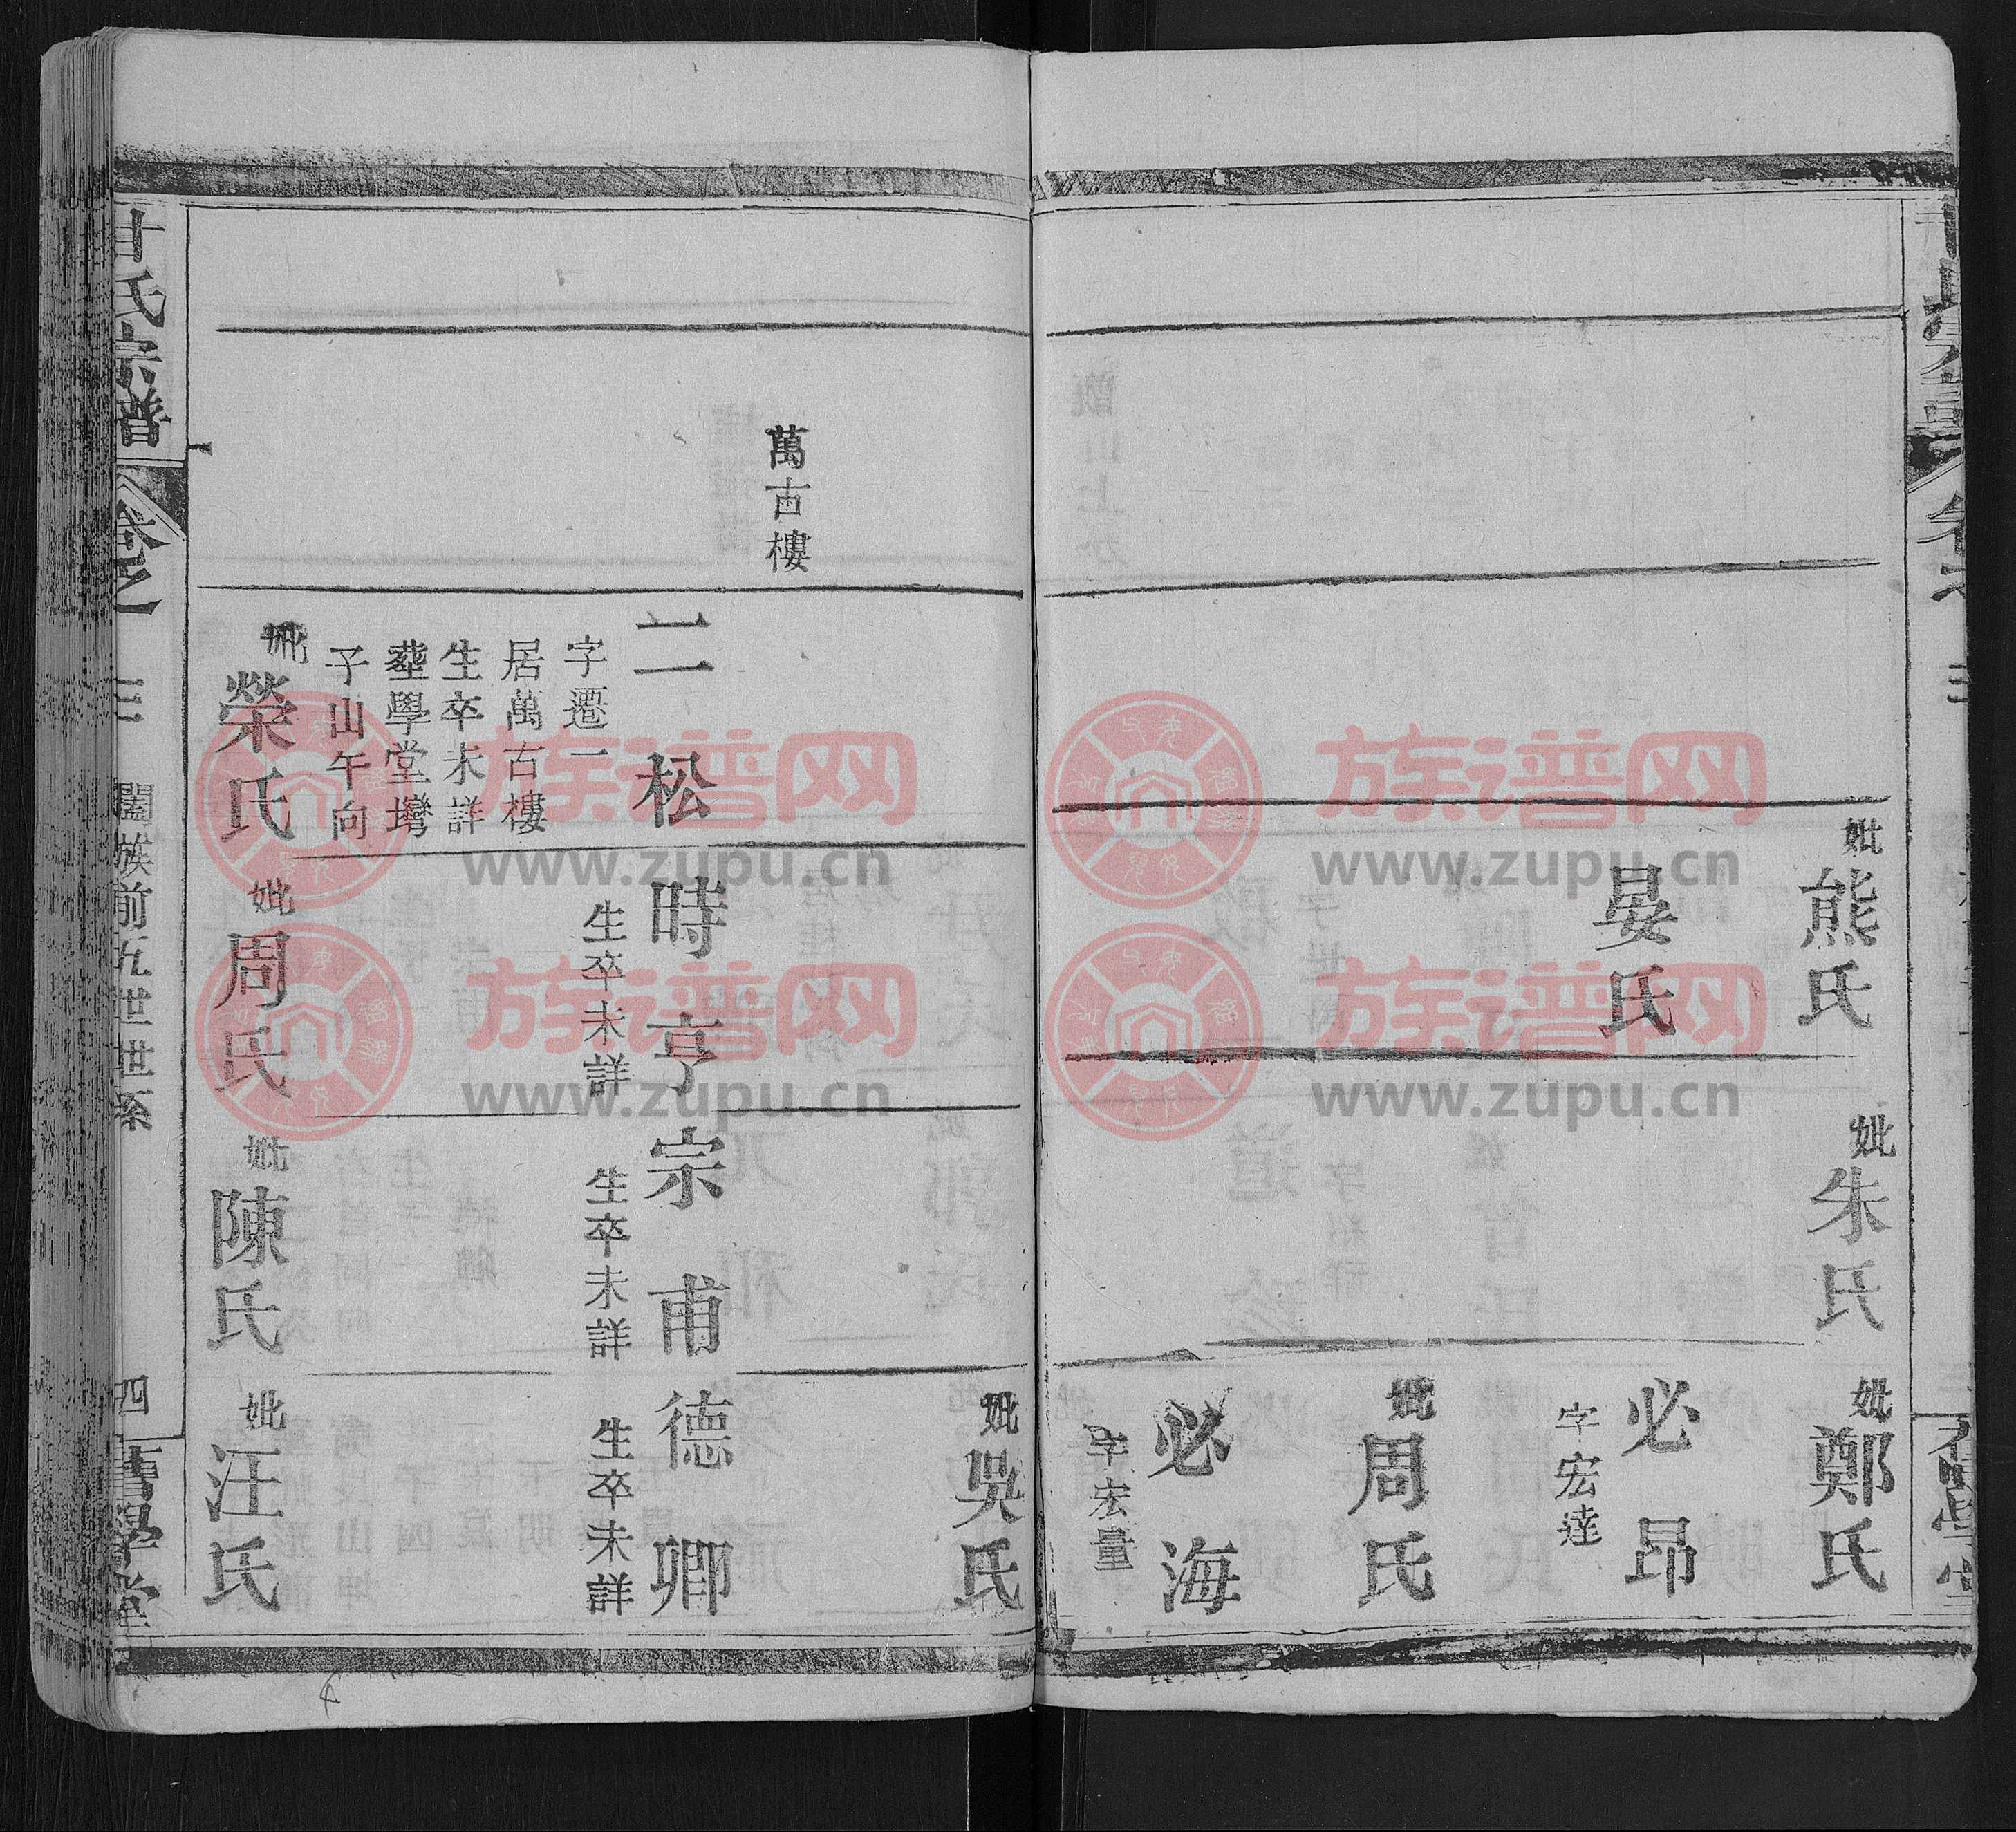 妣熊氏
妣朱氏
妣鄭氏
晏氏
必昂
字宏達
妣周氏
必海
字宏量
妣吳氏
萬古樓
二松
字遷一
居萬古樓
生卒未詳
塟學堂塆
子山午向
妣榮氏
時亨
生卒未詳
妣周氏
宗甫
生卒未詳
妣陳氏
德卿
生卒未詳
妣汪氏
甘氏宗譜
卷之
三
闔族前五世世系
四
舊學堂
族谱网
www.zupu.cn
族谱网
www.zupu.cn
族谱网
www.zupu.cn
族谱网
www.zupu.cn